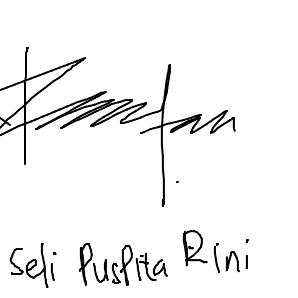 Seli Puspita Rini